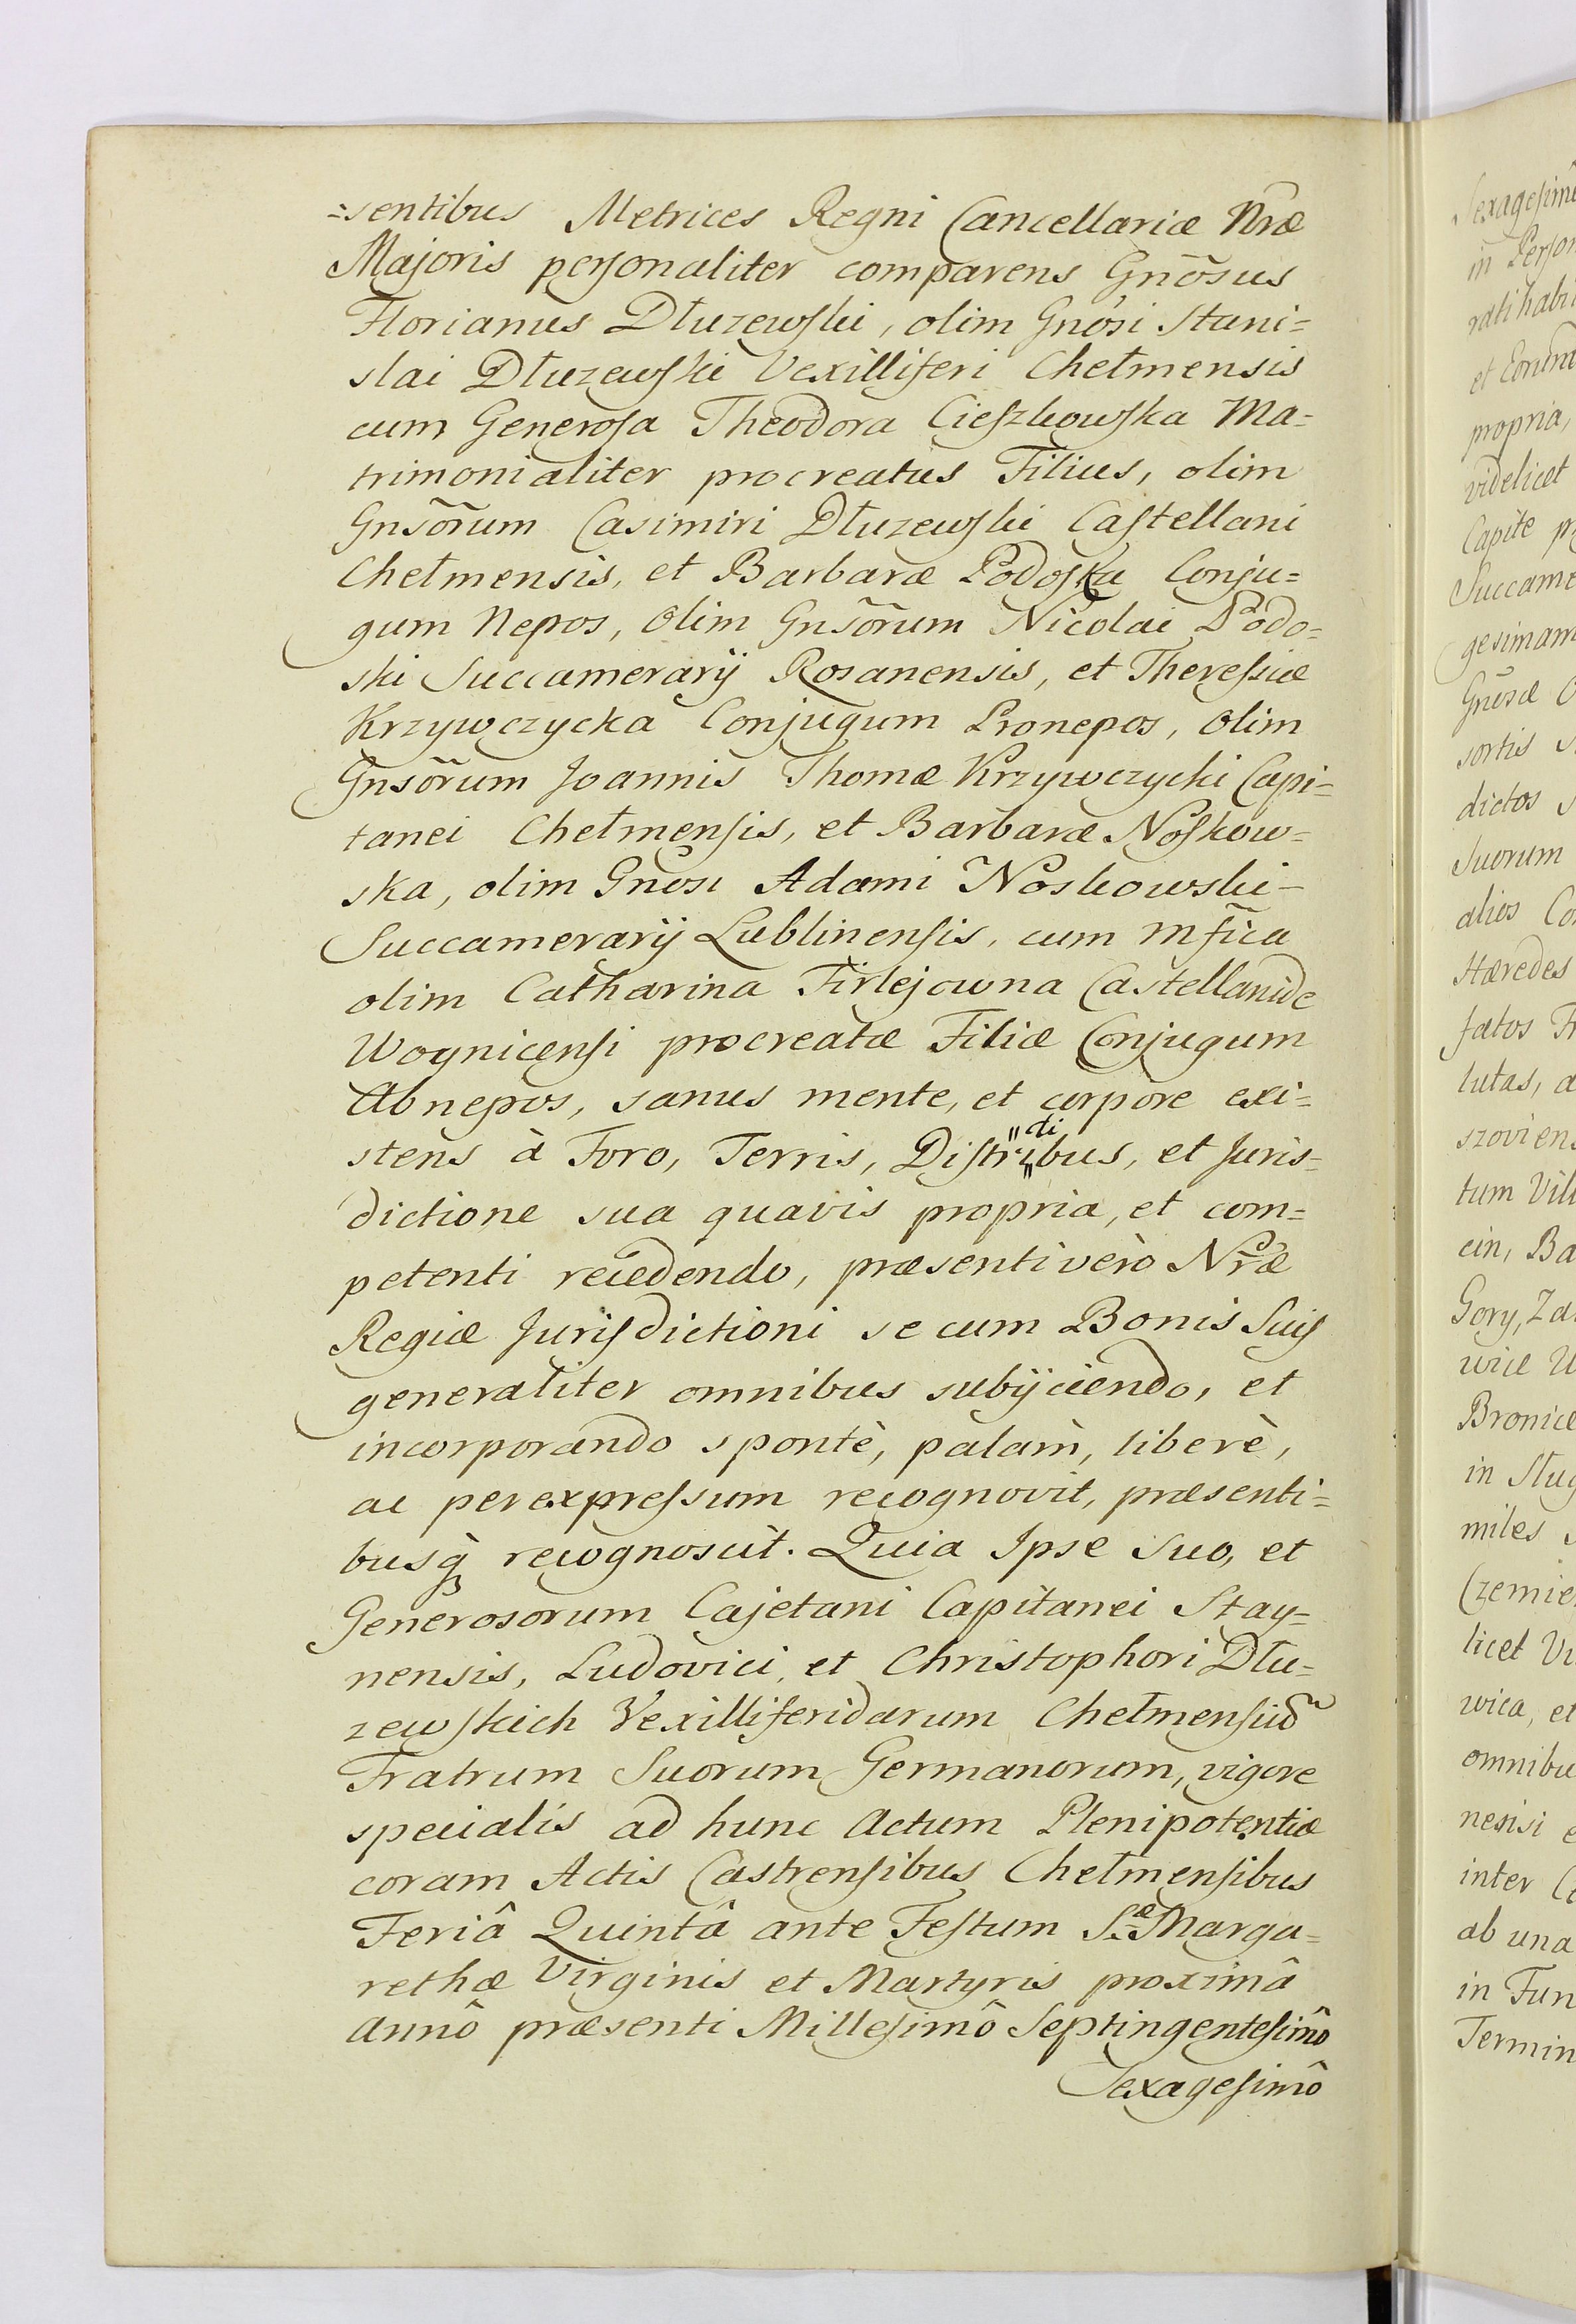 =sentibus Metrices Regni Cancellariæ Nr̃æ
Majoris personaliter comparens Gnõsus
Florianus Dłuzewski, olim Gnõsi Stani=
slai Dłuzewski Vexilliferi Chełmensis
cum Generosa Theodora Cieszkowska Ma=
trimonialiter procreatus Filius, olim
Gnsõrum Casimiri Dłuzewski Castellani
Chełmensis, et Barbaræ Podoska Conju=
gum Nepos, olim Gnsõrum Nicolai Podo=
ski Succamerarij Rosanensis, et Theressiæ
Krzywczycka Conjugum Pronepos, olim
Gnsõrum Joannis Thomæ Krzywczycki Capi=
tanei Chełmensis, et Barbaræ Noskow=
ska, olim Gnõsi Adami Noskowski
Succamerarij Lublinensis, cum Mfĩca
olim Catharina Firlejowna Castellanide
Woynicensi procreatæ Filiæ Conjugum
Abnepos, sanus mente, et corpore exi=
stens à Foro, Terris, Districtibus, et Juris=
dictione sua quavis propria, et com=
petenti recedendo, præsenti verò Nr̃æ
Regiæ Jurisdictioni se cum Bonis Suis
generaliter omnibus subijciendo, et
incorporando spontè, pàlàm, liberè,
ac per expressum recognovit, præsenti=
busq̀ recognoscit. Quia Ipse Suo, et
Generosorum Cajetani Capitanei Stay=
nensis, Ludovici, et Christophori Dłu=
zewskich Vexilliferidarum Chełmensiũ
Fratrum Suorum Germanorum, vigore
specialis ad hunc Actum Plenipotentiæ
coram Actis Castrensibus Chełmensibus
Feriâ Quintâ ante Festum S.æ Marga=
rethæ Virginis et Martyris proximâ
Annô præsenti Millesimô Septingentesimô
Sexagesimô
Sexagesimô
in Person
ratihabi
et Eorum
propria,
videlicet
Capite
Succame
gesimam
Gnõsæ
sortis
dictos
Suorum
alios Co
Hæredes
fatos Fr
lutas, a
szoviens
tum Vill
cin, Ba
Gory, Za
wice W
Bronice
in Sług
miles
Czemie
licet Vi
wica, et
omnibu
nensi e
inter C
ab una
in Fun
Termin